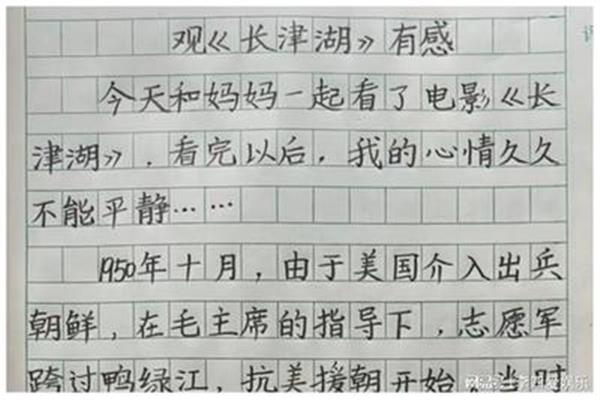 观《长津湖》有感
今天和妈妈一起看了电影《长
津湖》，看完以后，我的心情久久
不能平静……
1950年十月，由于美国介入出兵
朝鲜，在毛主席的指导下，志愿军
跨过鸭绿江，抗美援朝开始，当时